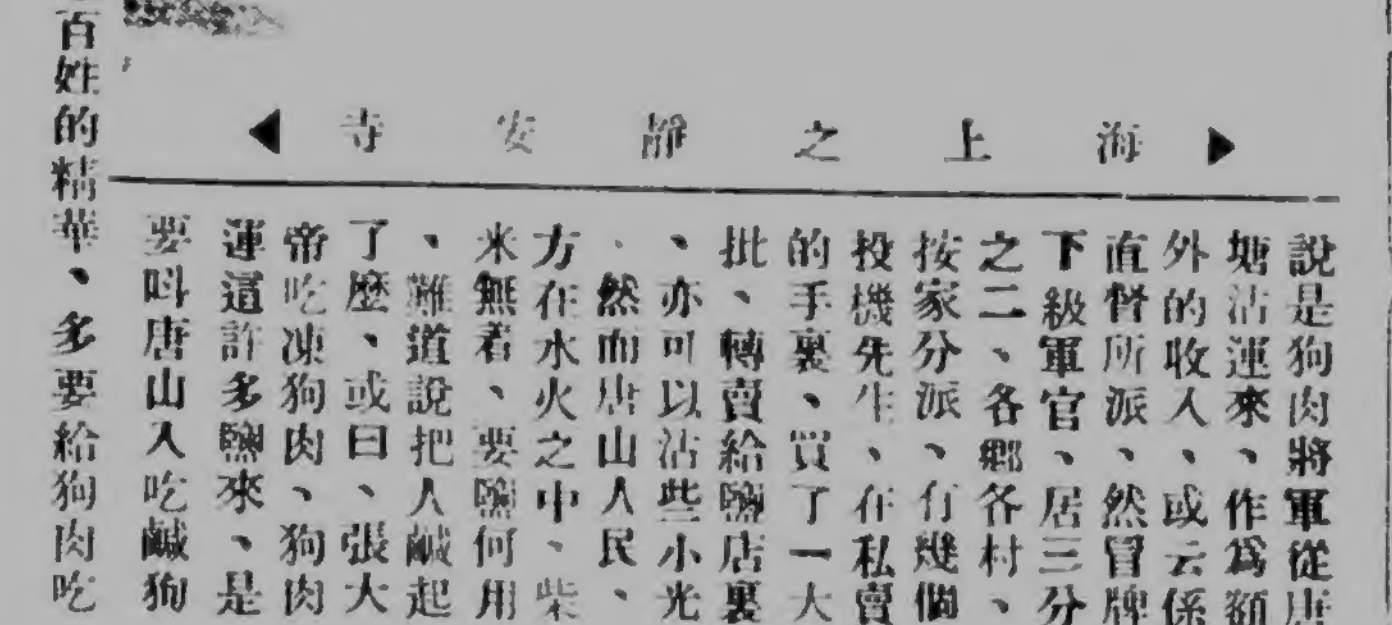 海上之靜安寺
說是狗肉將軍從唐
塘沽運來、作爲額
外的收入、或云係
直督所派、然冒牌
下級軍官、居三分
之二、各鄉各村、
按家分派、有幾個
投機先生、在私賣
的手裏、買了一大
批、轉賣給鹽店裏
、亦可以沾些小光
、然而唐山人民、
方在水火之中、柴
米無着、要鹽何用
、難道說把人鹹起
了麼、或曰、張大
帝吃凍狗肉、狗肉
運這許多鹽來、是
要叫唐山人吃鹹狗
百姓的精華、多要給狗肉吃